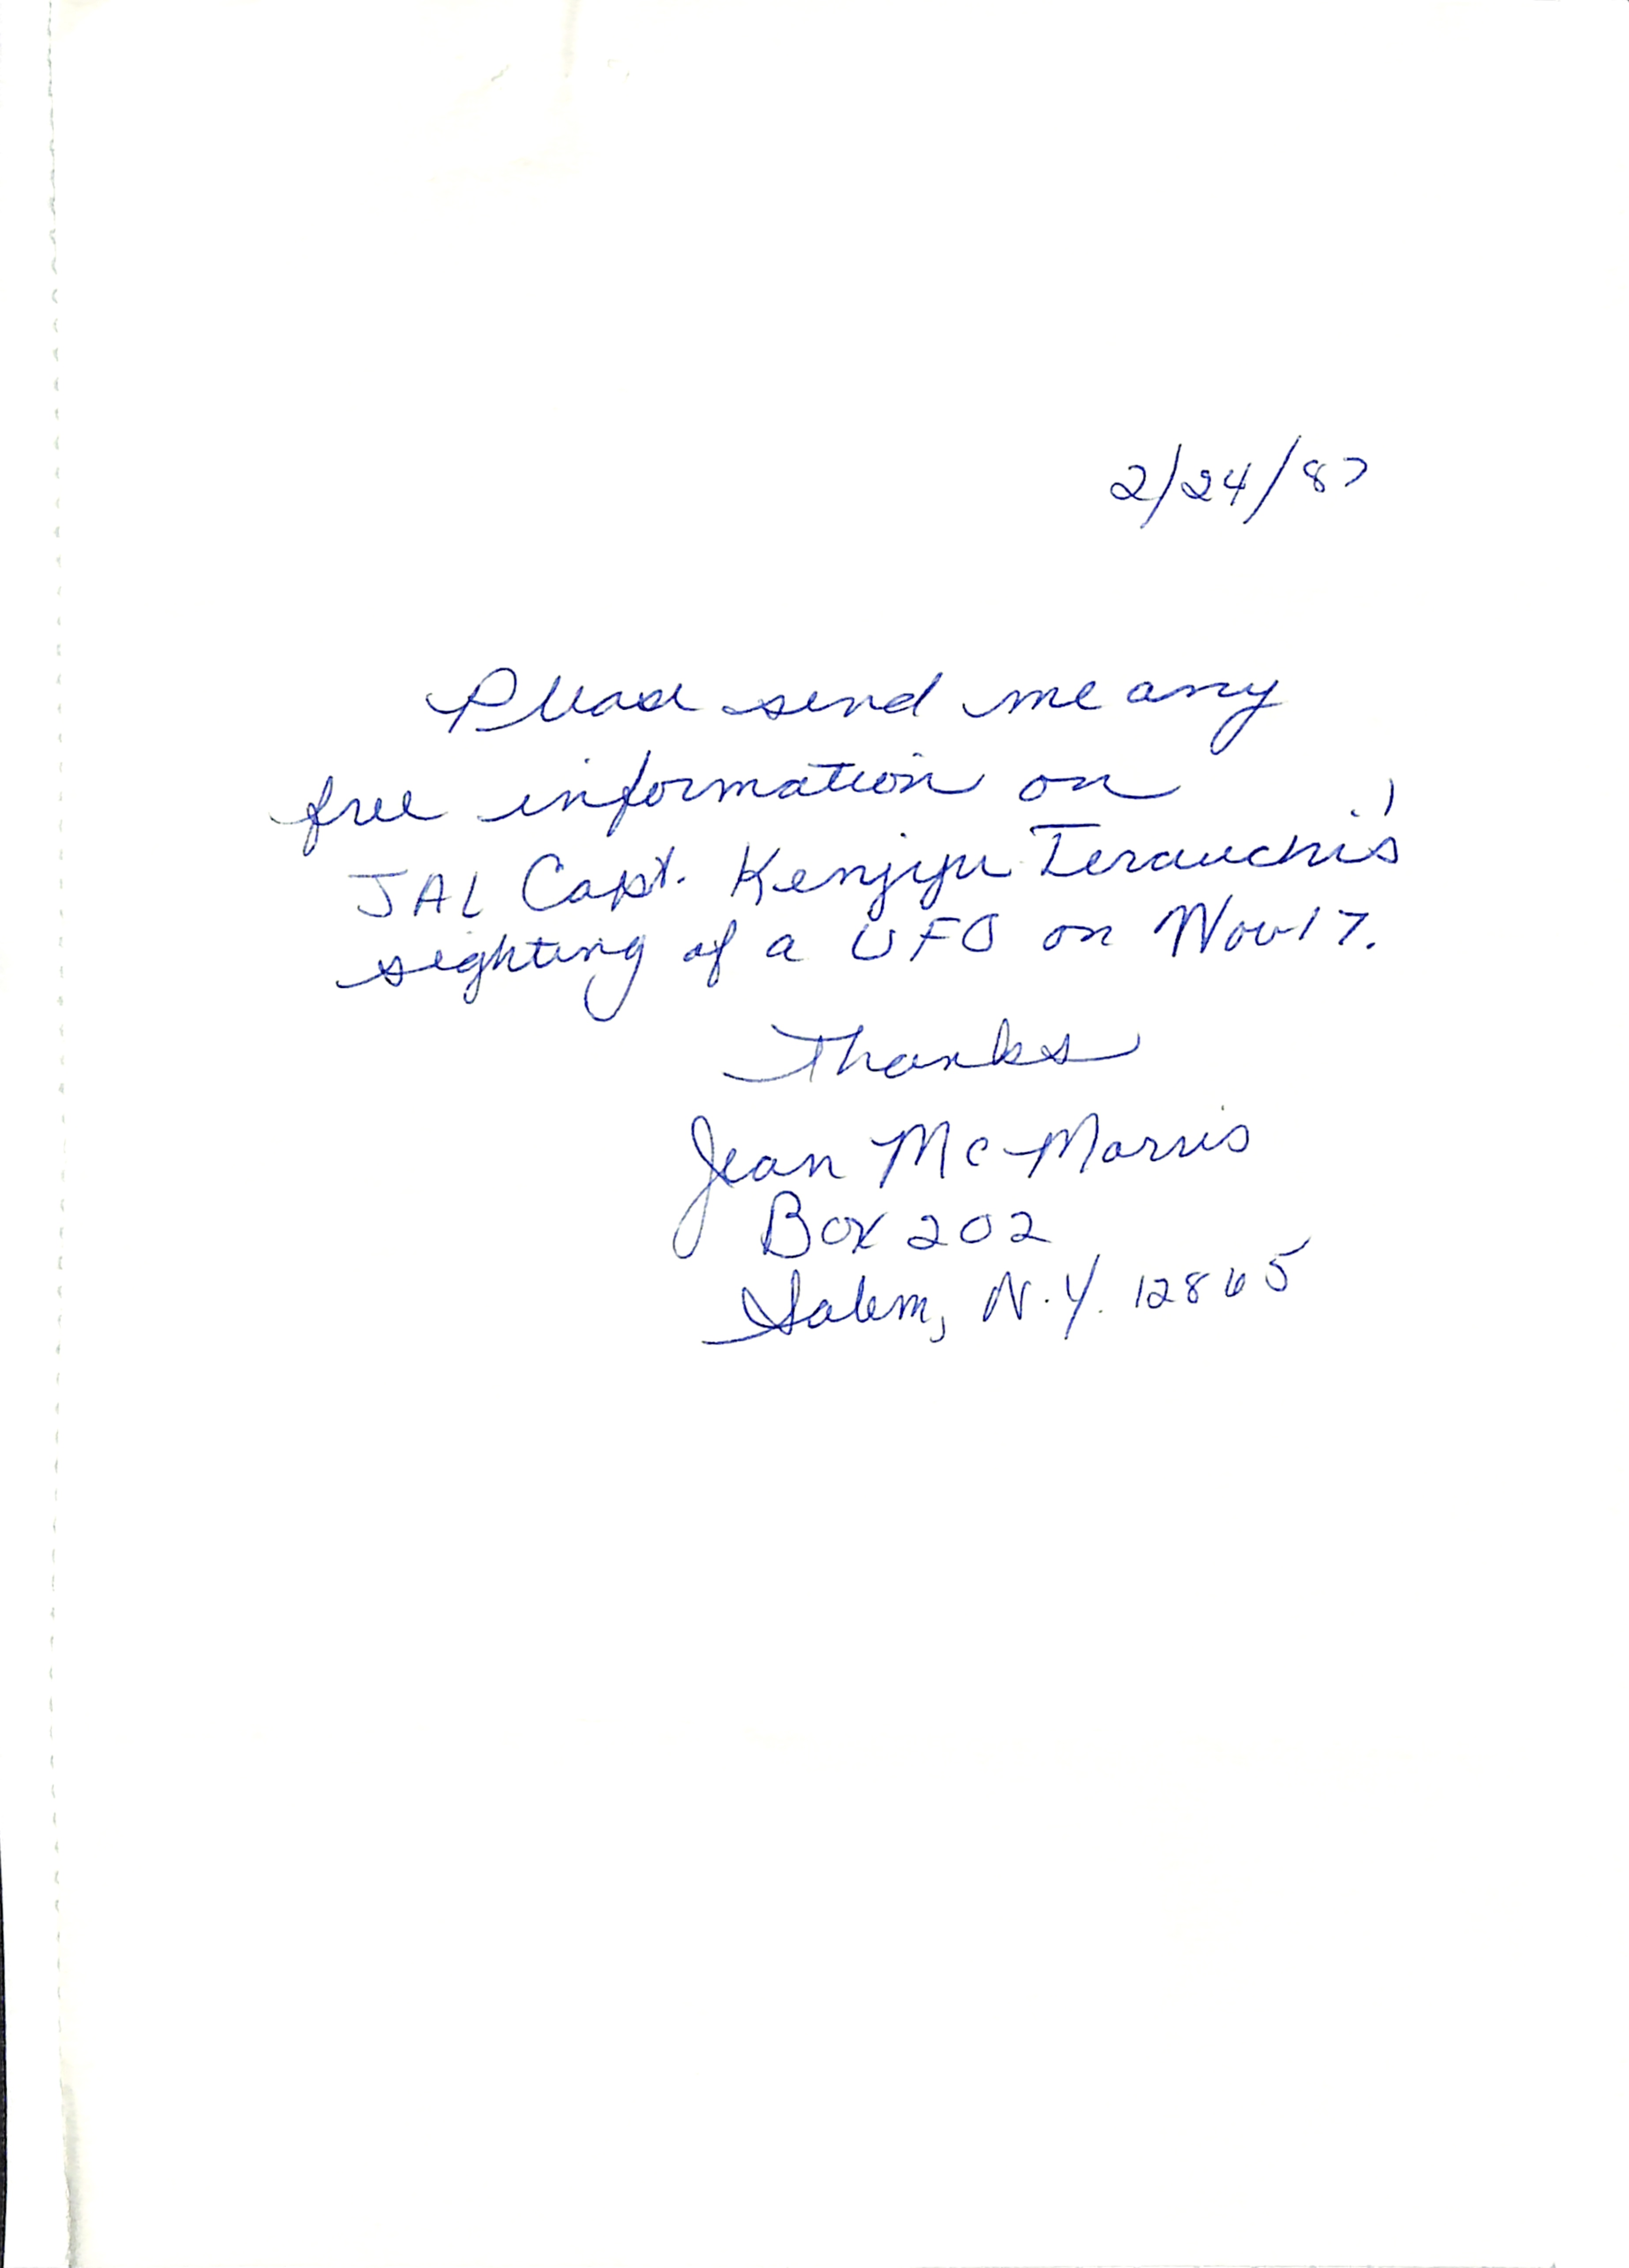 2/24/87
Please send me any
free information on
JAL Capt. Kenjyu Terauchi's
sighting of a UFO on Nov 17.
Thanks
Jean McMorris
Box 202
Salem, N.Y. 12865